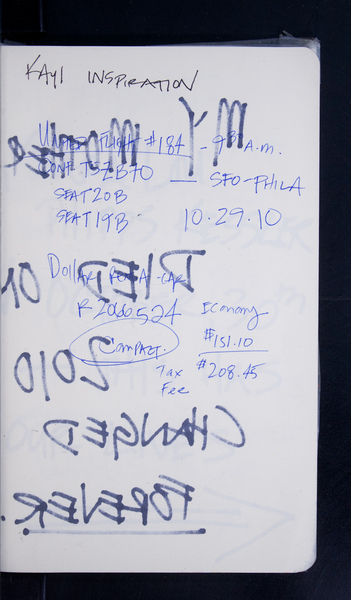 KAYI INSPIRATION
UNITED FLIGHT #184 — 9 A.M.
CONF T5ZB70 — SFO-PHILA
SEAT 20B
SEAT 19B 10.29.10
DOLLAR RENT-A-CAR
R2066524 Economy
COMPACT. $151.10
Tax $208.45
Fee
MY MOTHER
DIED ON
2010
CHANGED
FOREVER.